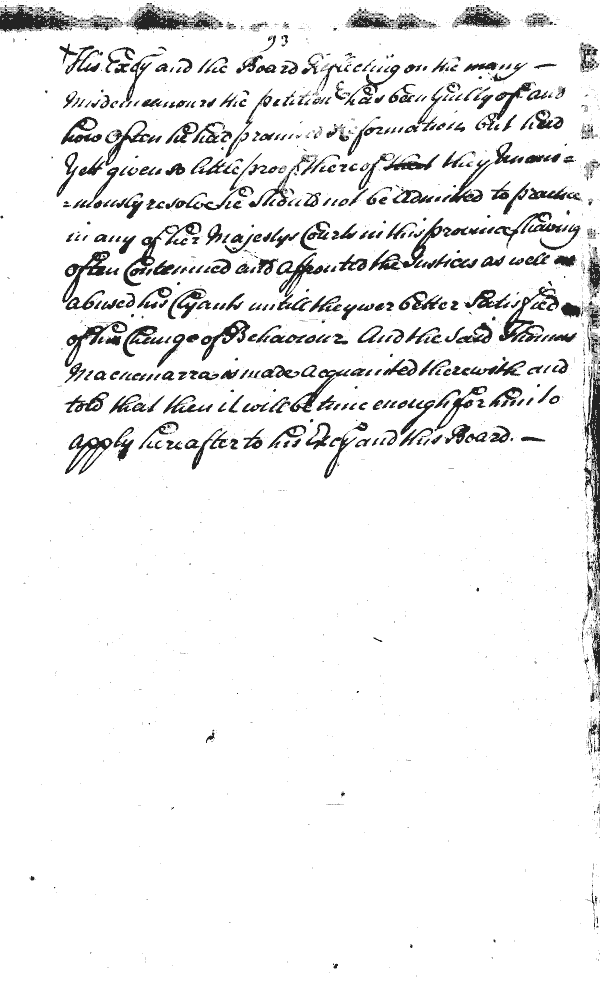 93
His Excy and the Board Reflecting on the many —
Misdemeanours the petitionr has been Guilty of and
how Often he had promised Reformation but had
Yett given so little proof thereof they Unani=
=mously resolve he Should not be Admitted to practice
in any of her Majestys Courts in this province, having
often Contemned and Affronted the Justices as well as
abused his Clyants untill they wer better Satisfied
of his Change of Behaviour. And the Said Thomas
Macnemarra is made Acquainted therewith and
told that then it will be time enough for him to
Apply hereafter to his Excy and this Board. —